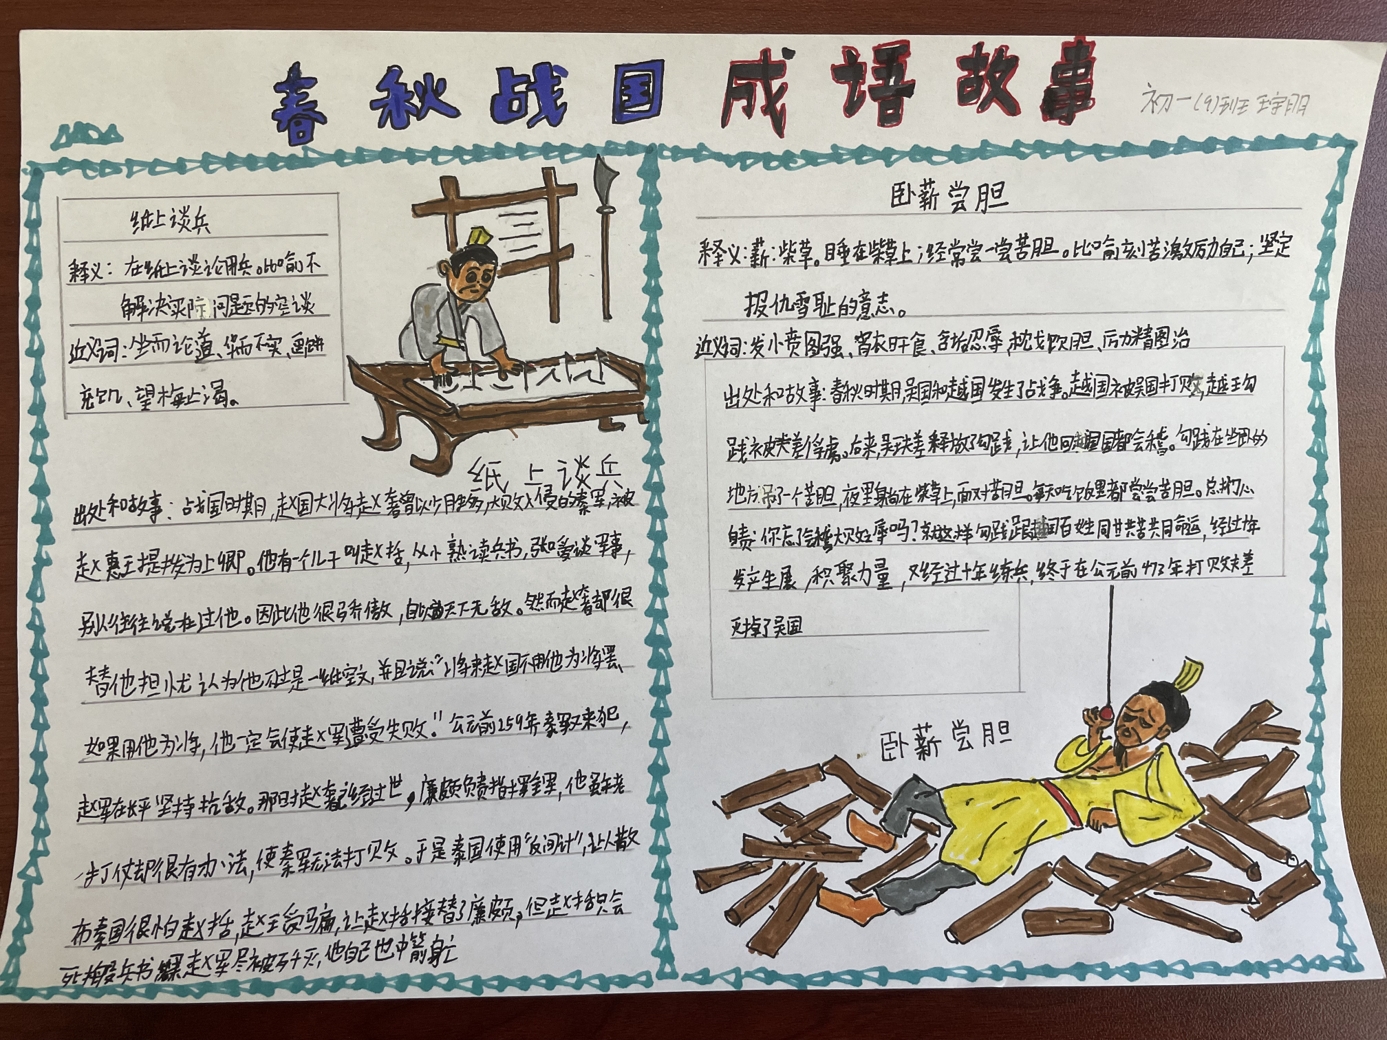 春秋战国成语故事
初一(9)班 王宇朋
纸上谈兵
释义：在纸上谈论用兵。比喻不
解决实际问题的空谈
近义词：坐而论道、华而不实、画饼
充饥、望梅止渴。
纸上谈兵
出处和故事：战国时期，赵国大将赵奢曾以少胜多，大败入侵的秦军，被
赵惠王提拔为上卿。他有一个儿子叫赵括，从小熟读兵书，张口爱谈军事，
别人往往说不过他。因此他很骄傲，自以为天下无敌。然而赵奢却很
替他担忧 认为他不过是一纸空文，并且说：“将来赵国不用他为将罢
如果用他为将，他一定会使赵军遭受失败。”公元前259年秦军又来犯，
赵军在长平坚持抗敌。那时赵奢已经去世，廉颇负责指挥全军，他虽年老
打仗却很有办法，使秦军无法打败。于是秦国使用“反间计”，让人散
布秦国很怕赵括，赵王受骗，让赵括接替了廉颇，但赵括只会
死搬兵书 结果赵军尽被歼灭，他自己也中箭身亡
卧薪尝胆
释义：薪：柴草。睡在柴草上；经常尝一尝苦胆。比喻刻苦激励自己；坚定
报仇雪耻的意志。
近义词：发愤图强、宵衣旰食、含垢忍辱、枕戈饮胆、厉精图治
出处和故事：春秋时期，吴国和越国发生了战争。越国被吴国打败，越王勾
践被夫差俘虏。后来，吴王夫差释放了勾践，让他回越国国都会稽。勾践在坐卧的
地方吊了一个苦胆，夜里躺在柴草上，面对苦胆。每天吃饭里都尝尝苦胆。总扪心
自责：你忘了会稽大败耻辱吗？就这样勾践跟越国百姓同甘共苦共同命运，经过十年
发产生展，积聚力量，又经过十年练兵，终于在公元前473年打败夫差
灭掉了吴国
卧薪尝胆